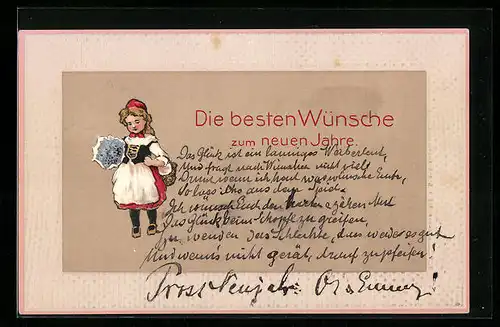 Die besten Wünsche
zum neuen Jahre.
Das Glück ist ein launiges
Und fragt nach Wünschen nicht viel,
Drum wenn ich Euch was wünsche
So lass' aus dem Spiel.
Ich wünsch' Euch den starken zähen Mut
Das Glück beim Schopfe zu greifen,
zu wenden das Schlechte, dass werde es gut
Und wenn's nicht gerät, drauf zu pfeifen!
Prost Neujahr!